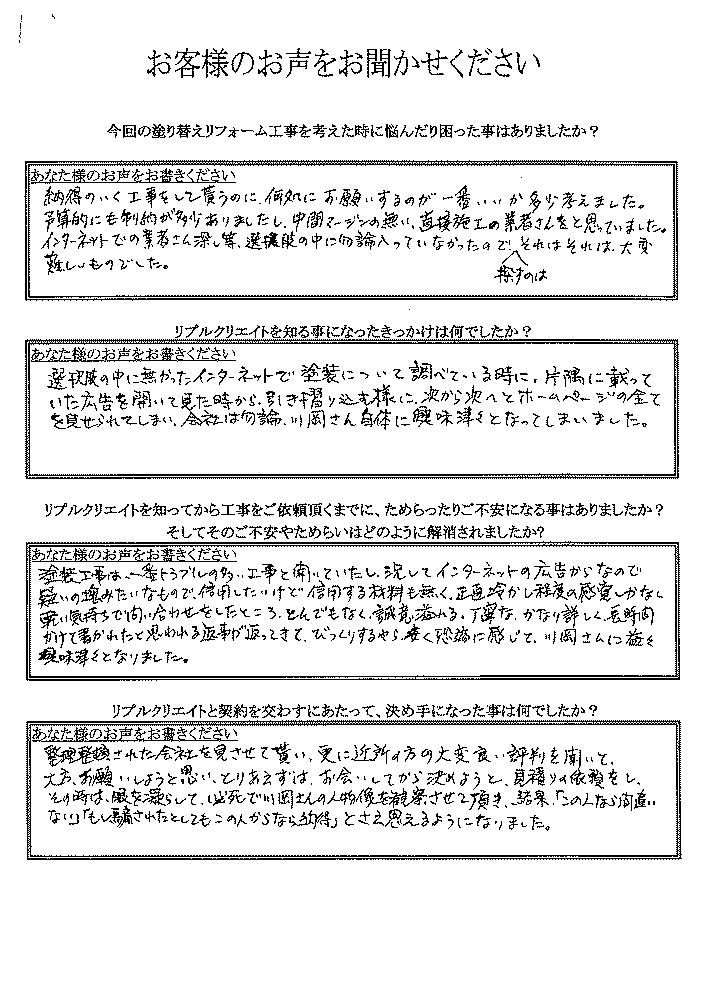 お客様のお声をお聞かせください
今回の塗り替えリフォーム工事を考えた時に悩んだり困った事はありましたか？
あなた様のお声をお書きください
納得のいく工事をして貰うのに、何処にお願いするのが一番いいか多少考えました。
予算的にも制約が多少ありましたし、中間マージンの無い、直接施工の業者さんをと思っていました。
インターネットでの業者さん探し等、選択肢の中に勿論入っていなかったので、それはそれは、大変
探すのは
難しいものでした。
リプルクリエイトを知る事になったきっかけは何でしたか？
あなた様のお声をお書きください
選択肢の中に無かったインターネットで塗装について調べている時に、片隅に載って
いた広告を開いて見た時から、引き摺り込む様に、次から次へとホームページの全て
を見せられてしまい、会社は勿論、川岡さん自体に興味津々となってしまいました。
リプルクリエイトを知ってから工事をご依頼頂くまでに、ためらったりご不安になる事はありましたか？
そしてそのご不安やためらいはどのように解消されましたか?
あなた様のお声をお書きください
塗装工事は、一番トラブルの多い工事と聞いていたし、況してインターネットの広告からなので
疑いの塊みたいなもので、信用したいけど信用する材料も無く、正直冷かし程度の感覚しかなく
軽い気持ちで問い合わせをしたところ、とんでもなく、誠意溢れる、丁寧な、かなり詳しく、長時間
かけて書かれたと思われる返事が返ってきて、びっくりするやら、凄く恐縮に感じて、川岡さんに益々
興味津々となりました。
リプルクリエイトと契約を交わすにあたって、決め手になった事は何でしたか？
あなた様のお声をお書きください
整理整頓された会社を見させて貰い、更に近所の方の大変良い評判を聞いて、
大方、お願いしようと思い、とりあえずは、お会いしてから決めようと、見積りの依頼をし、
その時は、眼を凝らして、必死で川岡さんの人物像を観察させて頂き、結果、「この人なら間違い
ない」「もし騙されたとしてもこの人からなら納得」とさえ思えるようになりました。